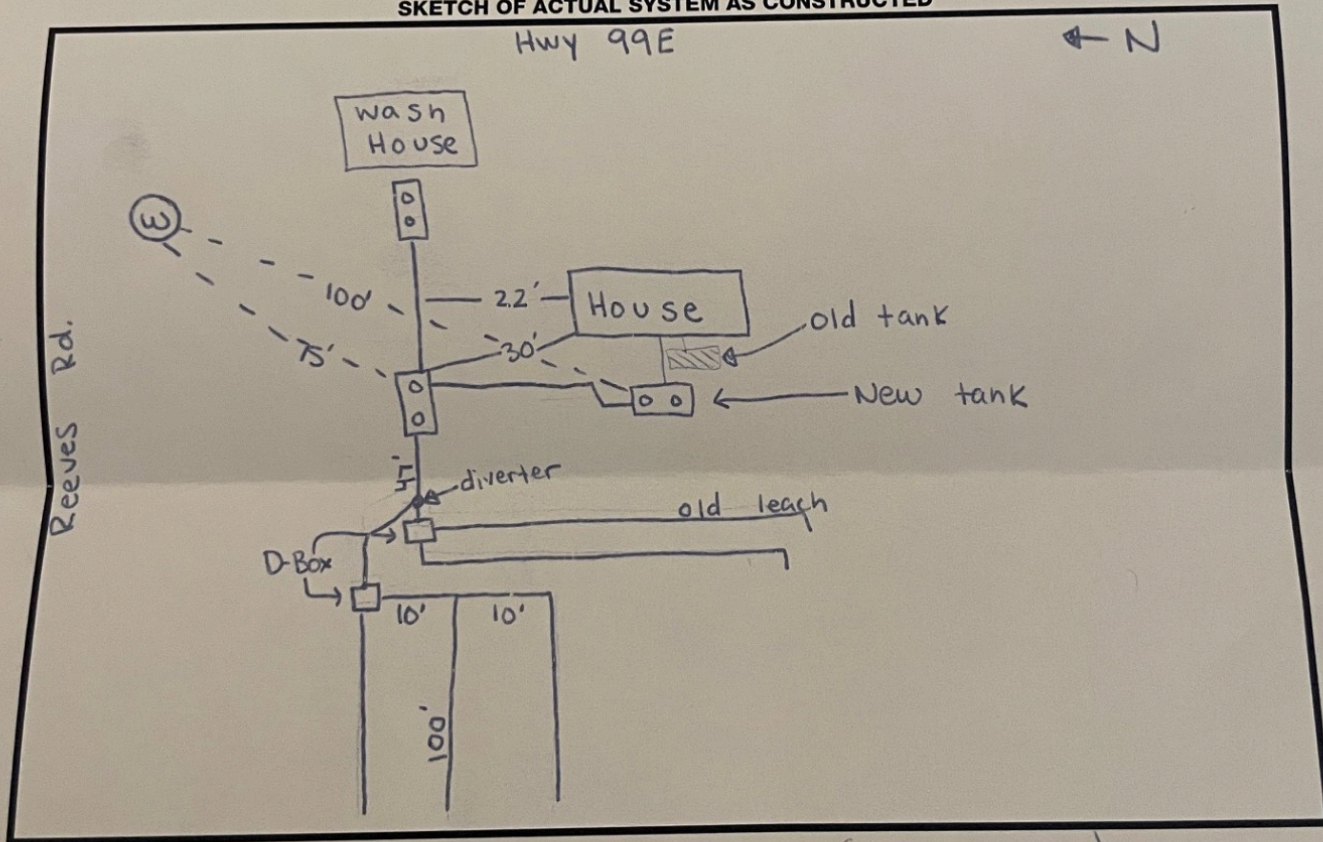 SKETCH OF ACTUAL SYSTEM AS CONSTRUCTED
Hwy 99E
← N
Wash
House
W
100'
22'
House
old tank
75'
30'
New tank
Reeves Rd.
diverter
old leach
D-Box
10'
10'
100'